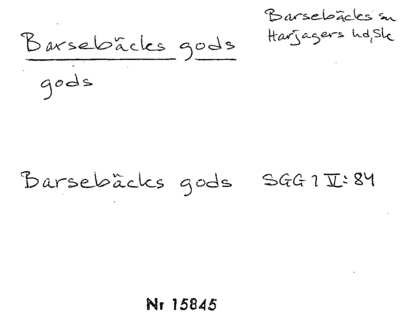 Barsebäcks gods
Barsebäcks sn
Harjagers hd, Sk
gods
Barsebäcks gods SGG 1 V: 84
Nr 15845